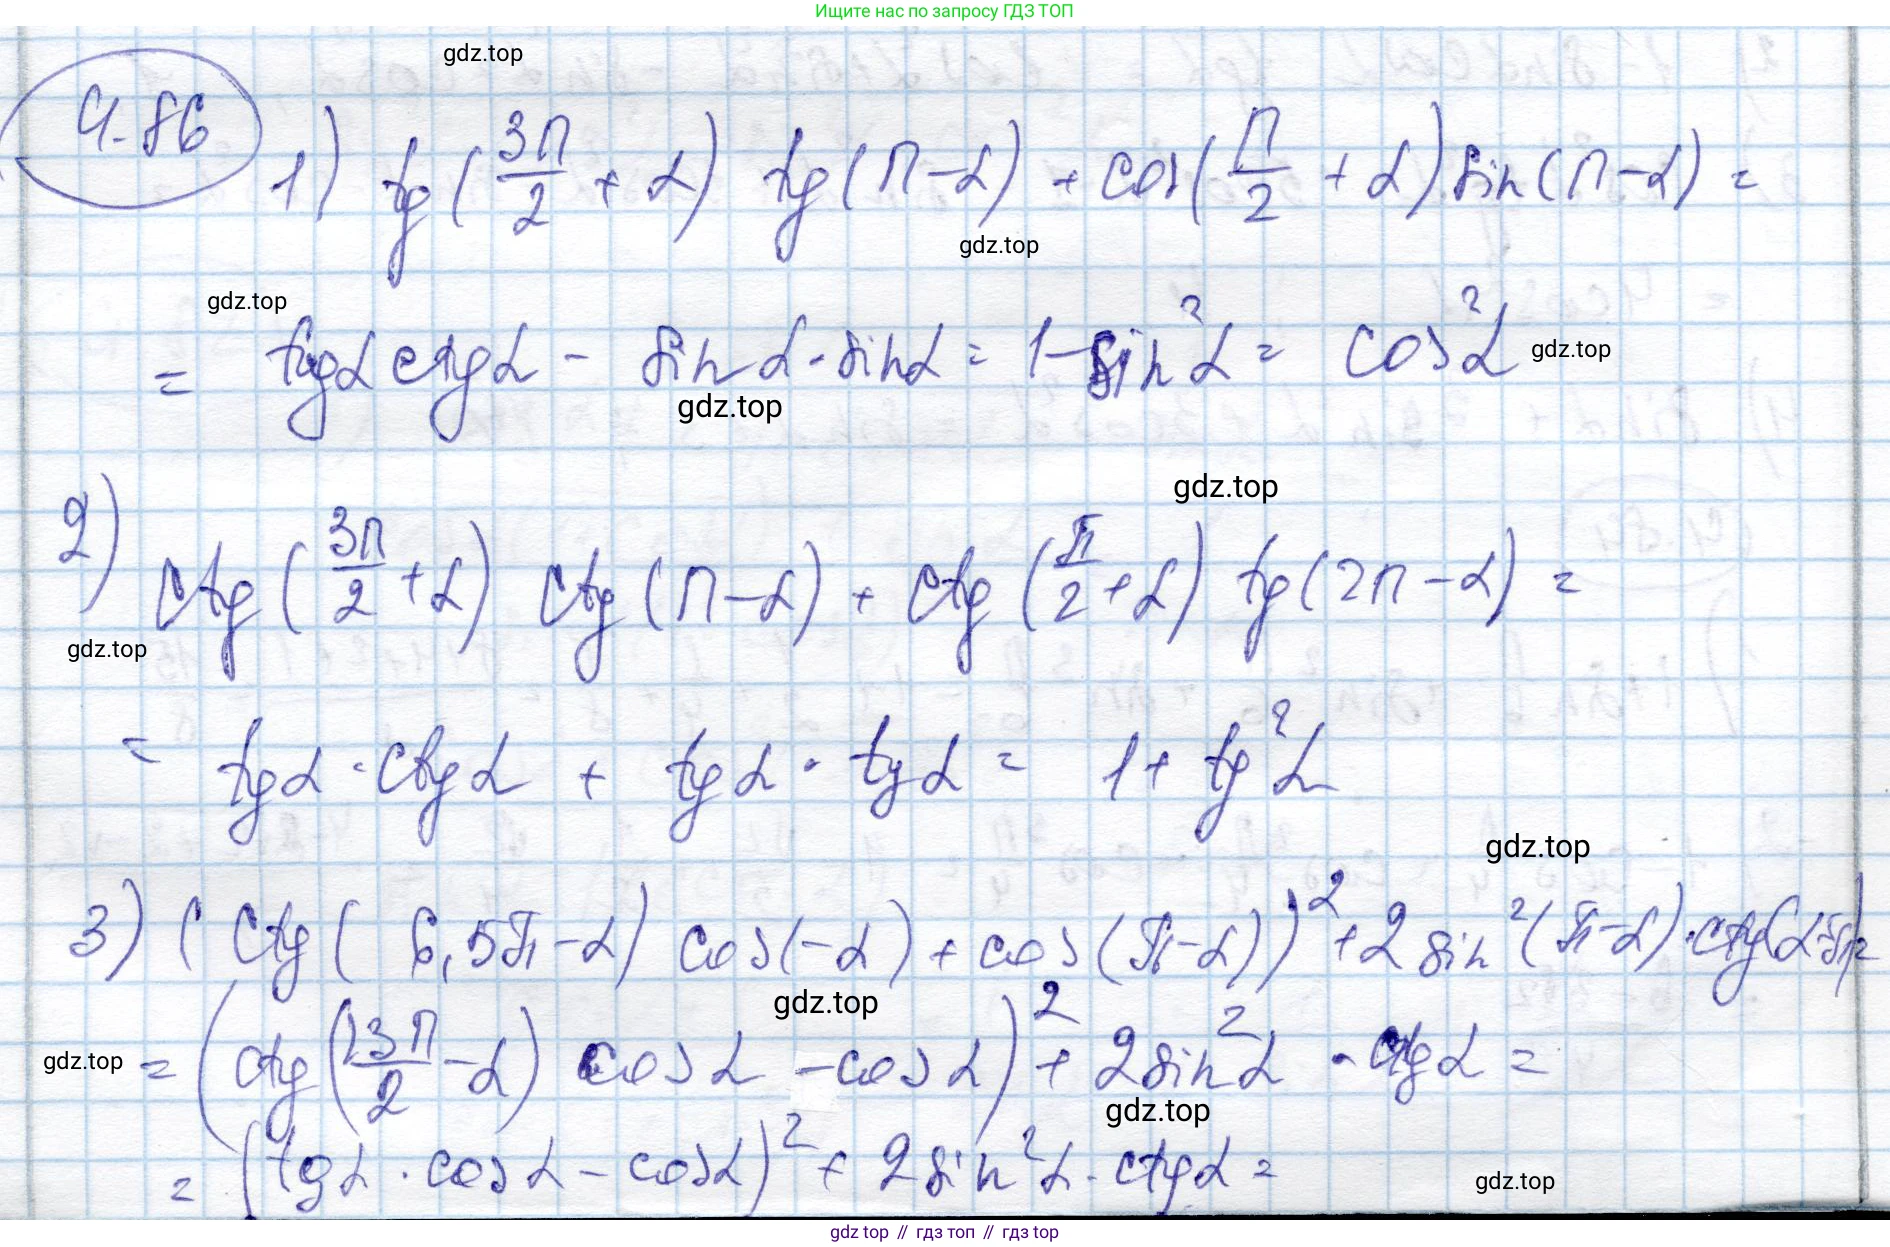 Ищите нас по запросу ГДЗ ТОП
gdz.top
4.86
1) tg(3π/2 + α) tg(π-α) + cos(π/2 + α) sin(π-α) =
gdz.top
gdz.top
= tgα ctgα - sin α · sinα = 1 - sin²α = cos²α gdz.top
gdz.top
gdz.top
2) ctg(3π/2 + α) ctg(π-α) + ctg(π/2 + α) tg(2π-α) =
gdz.top
= tgα · ctgα + tgα · tgα = 1 + tg²α
gdz.top
3) (ctg(6,5π-α) cos(-α) + cos(π-α))² + 2 sin²(π-α) · ctg(α-π)=
gdz.top
gdz.top = (ctg(13π/2 - α) cosα - cosα)² + 2sin²α · ctgα =
gdz.top
= (tgα · cosα - cosα)² + 2sin²α · ctgα =
gdz.top
gdz top // гдз топ // гдз top